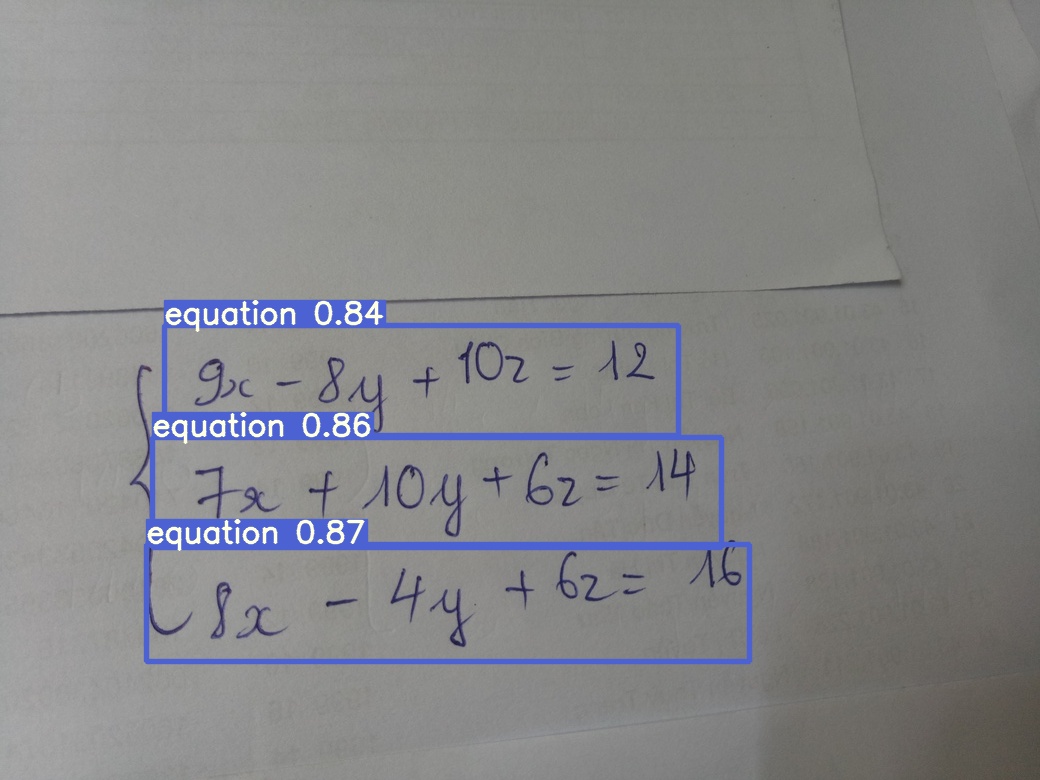 equation 0.84
9x - 8y + 10z = 12
equation 0.86
7x + 10y + 6z = 14
equation 0.87
8x - 4y + 6z = 16